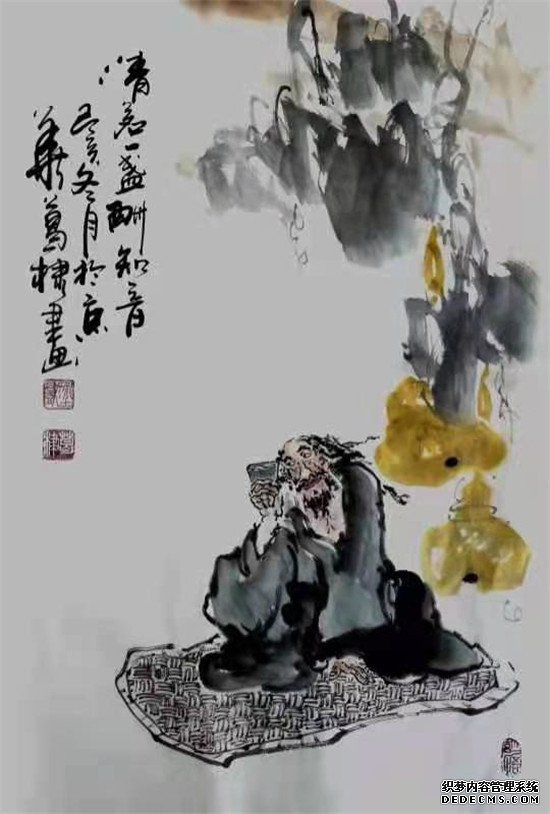 清茗一盏酬知音
己亥冬月於京
華葛棣畫
织梦内容管理系统
DEDECMS.COM